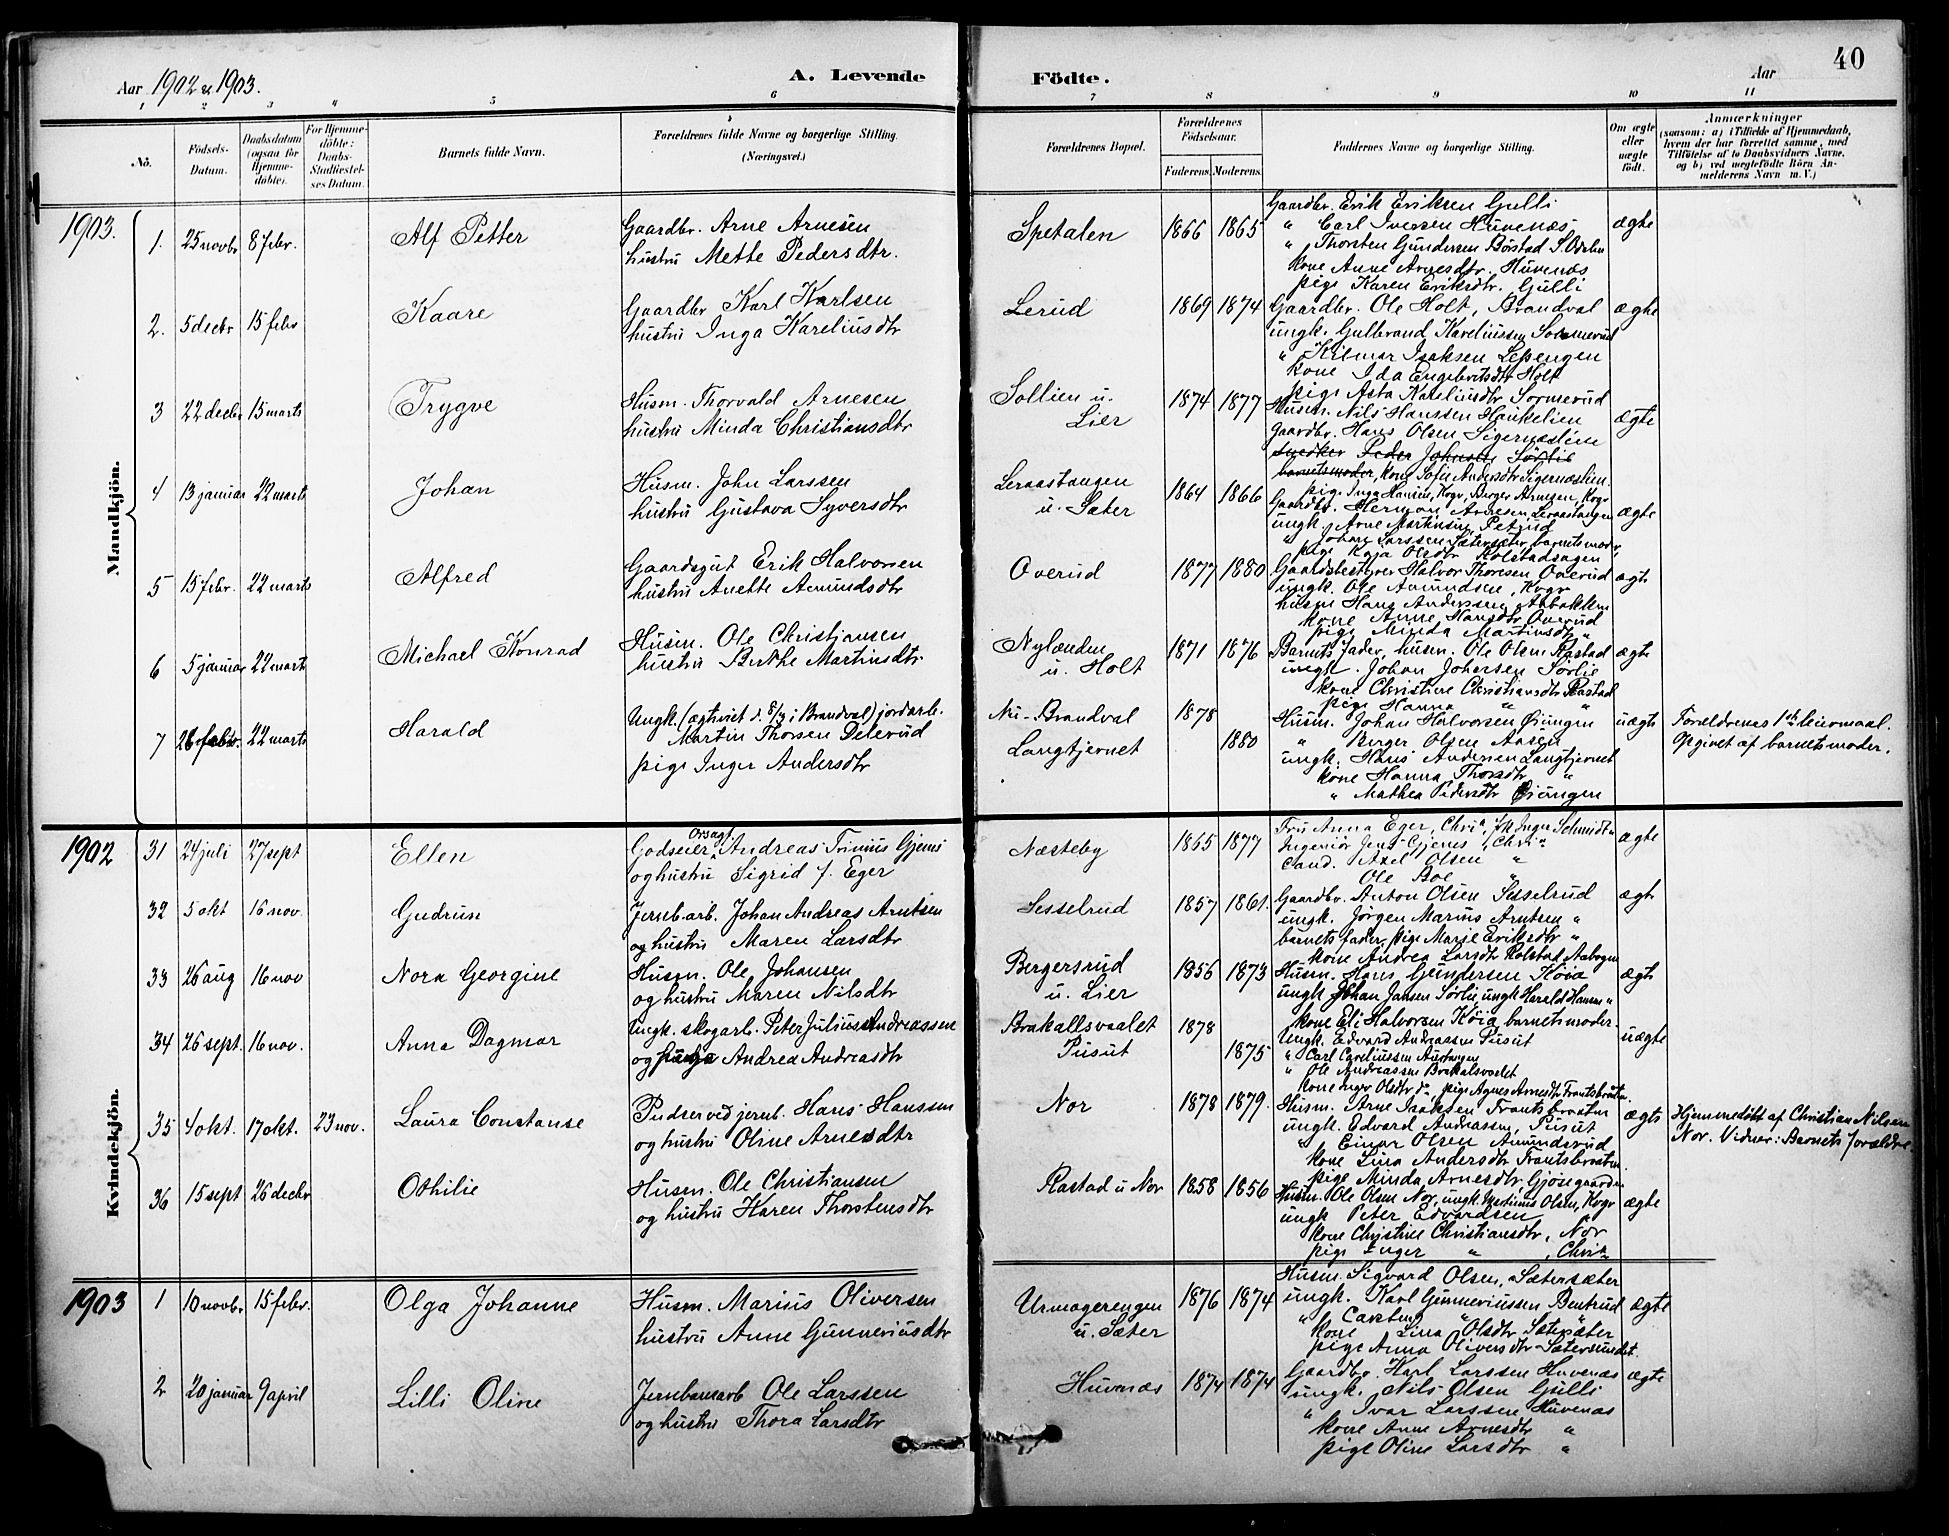 Aar 1902 & 1903.
A. Levende
Födte.
Aar
40
1 2 3 4 5 6 7 8 9 10 11
No.
Födsels-
Datum.
Daabsdatum
(ogsaa for
Hjemme-
döbte).
For Hjemme-
döbte:
Daabs-
Stadfæstel-
ses Datum.
Barnets fulde Navn.
Forældrenes fulde Navne og borgerlige Stilling.
(Næringsvei.)
Forældrenes Bopæl.
Forældrenes
Födselsaar.
Faderens. Moderens.
Faddernes Navne og borgerlige Stilling.
Om ægte
eller
uægte
födt.
Anmærkninger
(saasom: a) i Tilfælde af Hjemmedaab,
hvem der har forrettet samme, med
Tilföielse af to Daabsvidners Navne,
og b) ved uægtefödte Börn An-
melderens Navn m. V.)
Mandkjön.
1903.
1. 25 novbr 8 febr. Alf Petter
Gaardbr. Arne Arnesen
hustru Mette Pedersdtr.
Spetalen 1866 1865
Gaardbr. Erik Eriksen Gulli
" Carl Iversen Huvenæs
" Thorsten Gundersen Børstad S. Odalen
kone Anne Arnesdtr. Huvenæs
pige Karen Eriksdtr. Gulli
ægte
2. 5 decbr 15 febr Kaare
Gaardbr Karl Karlsen
hustru Inga Kareliusdtr
Lerud 1869 1874
Gaardbr. Ole Holt, Brandval
ungk. Gulbrand Kareliussen Sormerud
" Hilmar Isaksen
kone Ida Engebretsdtr Holt
pige Asta Kareliusdtr Sormerud
ægte
3 22 decbr 15 marts Trygve
Husm. Thorvald Arnesen
hustru Minda Christiansdtr
Sollien u.
Lier
1874 1877
Husm. Nils Hanssen Haukelien
Gaardbr. Hans Olsen Sigernæslien
snedker Peder Johnsen Sørlie
barnetsmoder, kone Sofie Andersdtr Sigernæslien.
pige Inga Hansen, Kogv, Berger Arnesen, Kogv
ægte
4 13 januar 22 marts Johan
Husm. John Larssen
hustru Gustava Syversdtr
Leraastangen
u. Sæter
1864 1866
Gaardbr. Herman Arnesen Leraastangen
ungk. Arne Martinsen Petrud
" Johan Larssen Sætersæter, barnets moder,
pige Kaja Olsdtr Kolstadsagen
ægte
5 15 febr. 22 marts Alfred
Gaardsgut Erik Halvorsen
hustru Anette Amundsdtr
Overud 1877 1880
Gaardsbestyrer Halvor Thoresen Overud
ungk. Ole Amundsen, Kogv
husm Hans Anderssen Abbakken
kone Anne Hansdtr Overud
pige Minda Martinsdtr "
ægte
6 5 januar 22 marts Michael Konrad
Husm. Ole Christjansen
hustru Berthe Martinsdtr
Nylænden
u. Holt
1871 1876
Barnets fader, husm. Ole Olsen Rastad
ungk. Johan Johansen Sørlie
kone Christine Christiansdtr Rastad
pige Hanna " "
ægte
7 26 febr. 22 marts Harald
Ungk. (ægteviet d. 8/3 i Brandval) jordarb.
Martin Thorsen Delerud
pige Inger Andersdtr
Nu-Brandval 1878
Langtjernet 1880
Husm. Johan Halvorsen Øiungen
" Berger Olsen Aasen
ungk. Hans Andersen Langtjernet
kone Hanna Thorsdtr "
" Mathea Pedersdtr Øiungen
uægte
Forældrenes 1ste leiermaal.
Opgivet af barnets moder.
Kvindekjön.
1902
31 24 juli 27 sept Ellen
Godseier Orsagf. Andreas Trinius Gjems
og hustru Sigrid f. Eger
Næsteby 1865 1877
Fru Anna Eger, Chra, frk Inger Schmidt "
Ingeniör Jens Gjems, Chra
Cand. Axel Olsen "
Ole Boe "
ægte
32 5 okt 16 nov. Gudrun
Jernb.arb. Johan Andreas Arntsen
og hustru Maren Larsdtr
Sesselrud 1857 1861.
Gaardbr. Anton Olsen Sesselrud
ungk. Jörgen Marius Arntsen "
barnets fader, pige Marie Eriksdtr "
kone Andrea Larsdtr Kolstad Aabogen
ægte
33 26 aug 16 nov Nora Georgine
Husm. Ole Johansen
og hustru Maren Nilsdtr
Bergersrud
u. Lier
1856 1873
Husm. Hans Gundersen Köia
ungk Johan Jansen Sörlie, ungk Harald Hansen "
kone Eli Halvorsen Köia, barnets moder.
ægte
34 26 sept. 16 nov. Anna Dagmar
Ungk. skogarb. Peter Julius Andreassen
og pige Andrea Andreasdtr
Brakallsvaalet 1878
Pusut 1875
Ungk. Edvard Andreassen Pusut
" Carl Careliussen Austangen
" Ole Andreassen Brakalsvaalet
kone Inger Olsdtr do, pige Agnes Arnesdtr Frantsbraaten
uægte
35 4 okt. 17 okt. 23 nov. Laura Constanse
Pudser ved jernb. Hans Hanssen
og hustru Oline Arnesdtr
Nor 1878 1879.
Husm. Arne Isaksen Frantsbraaten
ungk. Edvard Andreassen, Pusut
" Einar Olsen Amundsrud
kone Lina Andersdtr Frantsbraaten.
pige Minda Arnesdtr Gjösegaarden
ægte
Hjemmedöbt af Christian Nilsen
Nor. Vidner: Barnets forældre
36 15 sept 26 decbr Othilie
Husm. Ole Christiansen
og hustru Karen Thorstensdtr
Rastad u Nor 1858 1856
Husm. Ole Olsen Nor, ungk Martinius Olsen, Kogv
ungk Peter Edvardsen "
kone Christine Christiansdtr, Nor
pige Inger " , Chria
ægte
1903
1 10 novbr 15 febr. Olga Johanne
Husm. Marius Oliversen
hustru Anne Gunneriusdtr
Urmagerengen
u. Sæter
1876 1874
Husm. Sigvard Olsen, Sætersæter
ungk. Karl Gunneriussen Bentrud
" Carsten " "
kone Lina Olsdtr Sætersæter
pige Anna Oliversdtr Sætersundet
ægte
2 20 januar 9 april Lilli Oline
Jernbanearb Ole Larssen
og hustru Thora Larsdtr
Huvenæs 1874 1874
Gaardbr. Karl Larssen Huvenæs
ungk. Nils Olsen Gulli
" Ivar Larssen Huvenæs
kone Anne Arnesdtr "
pige Oline Larsdtr "
ægte